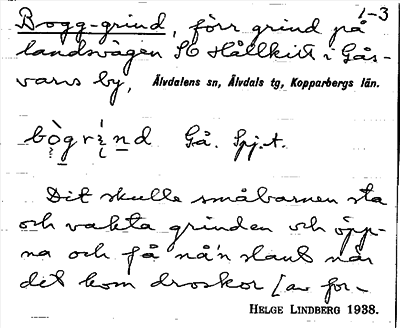 1-3
Bogg-grind, förr grind på
landsvägen SO Hållkitt i Gås-
varvs by, Älvdalens sn, Älvdals tg, Kopparbergs län.
bògrìnd Gå. Spj.t.
Dit skulle småbarnen sta
och vakta grinden och öpp-
na och få nå'n slant när
det kom droskor [av för-
HELGE LINDBERG 1938.